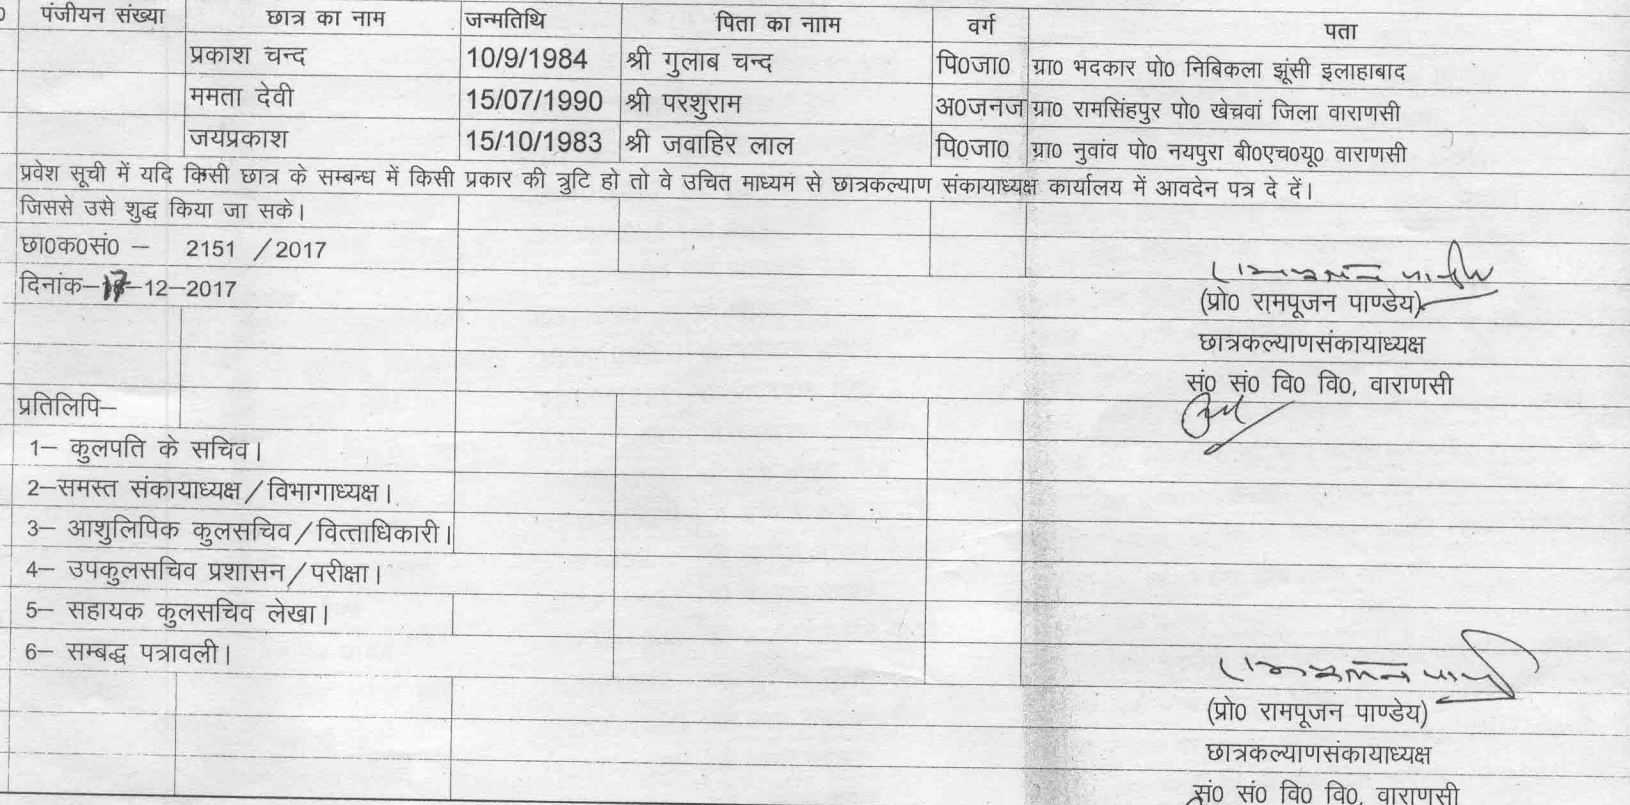 0 पंजीयन संख्या छात्र का नाम जन्मतिथि पिता का नााम वर्ग पता
प्रकाश चन्द 10/9/1984 श्री गुलाब चन्द पि0जा0 ग्रा0 भदकार पो0 निबिकला झूंसी इलाहाबाद
ममता देवी 15/07/1990 श्री परशुराम अ0जनज ग्रा0 रामसिंहपुर पो0 खेचवां जिला वाराणसी
जयप्रकाश 15/10/1983 श्री जवाहिर लाल पि0जा0 ग्रा0 नुवांव पो0 नयपुरा बी0एच0यू0 वाराणसी
प्रवेश सूची में यदि किसी छात्र के सम्बन्ध में किसी प्रकार की त्रुटि हो तो वे उचित माध्यम से छात्रकल्याण संकायाध्यक्ष कार्यालय में आवदेन पत्र दे दें।
जिससे उसे शुद्ध किया जा सके।
छा0क0सं0 – 2151 /2017
दिनांक–17–12–2017
(प्रो0 रामपूजन पाण्डेय)
छात्रकल्याणसंकायाध्यक्ष
सं0 सं0 वि0 वि0, वाराणसी
प्रतिलिपि–
1– कुलपति के सचिव।
2–समस्त संकायाध्यक्ष/विभागाध्यक्ष।
3– आशुलिपिक कुलसचिव/वित्ताधिकारी।
4– उपकुलसचिव प्रशासन/परीक्षा।
5– सहायक कुलसचिव लेखा।
6– सम्बद्ध पत्रावली।
(प्रो0 रामपूजन पाण्डेय)
छात्रकल्याणसंकायाध्यक्ष
सं0 सं0 वि0 वि0, वाराणसी